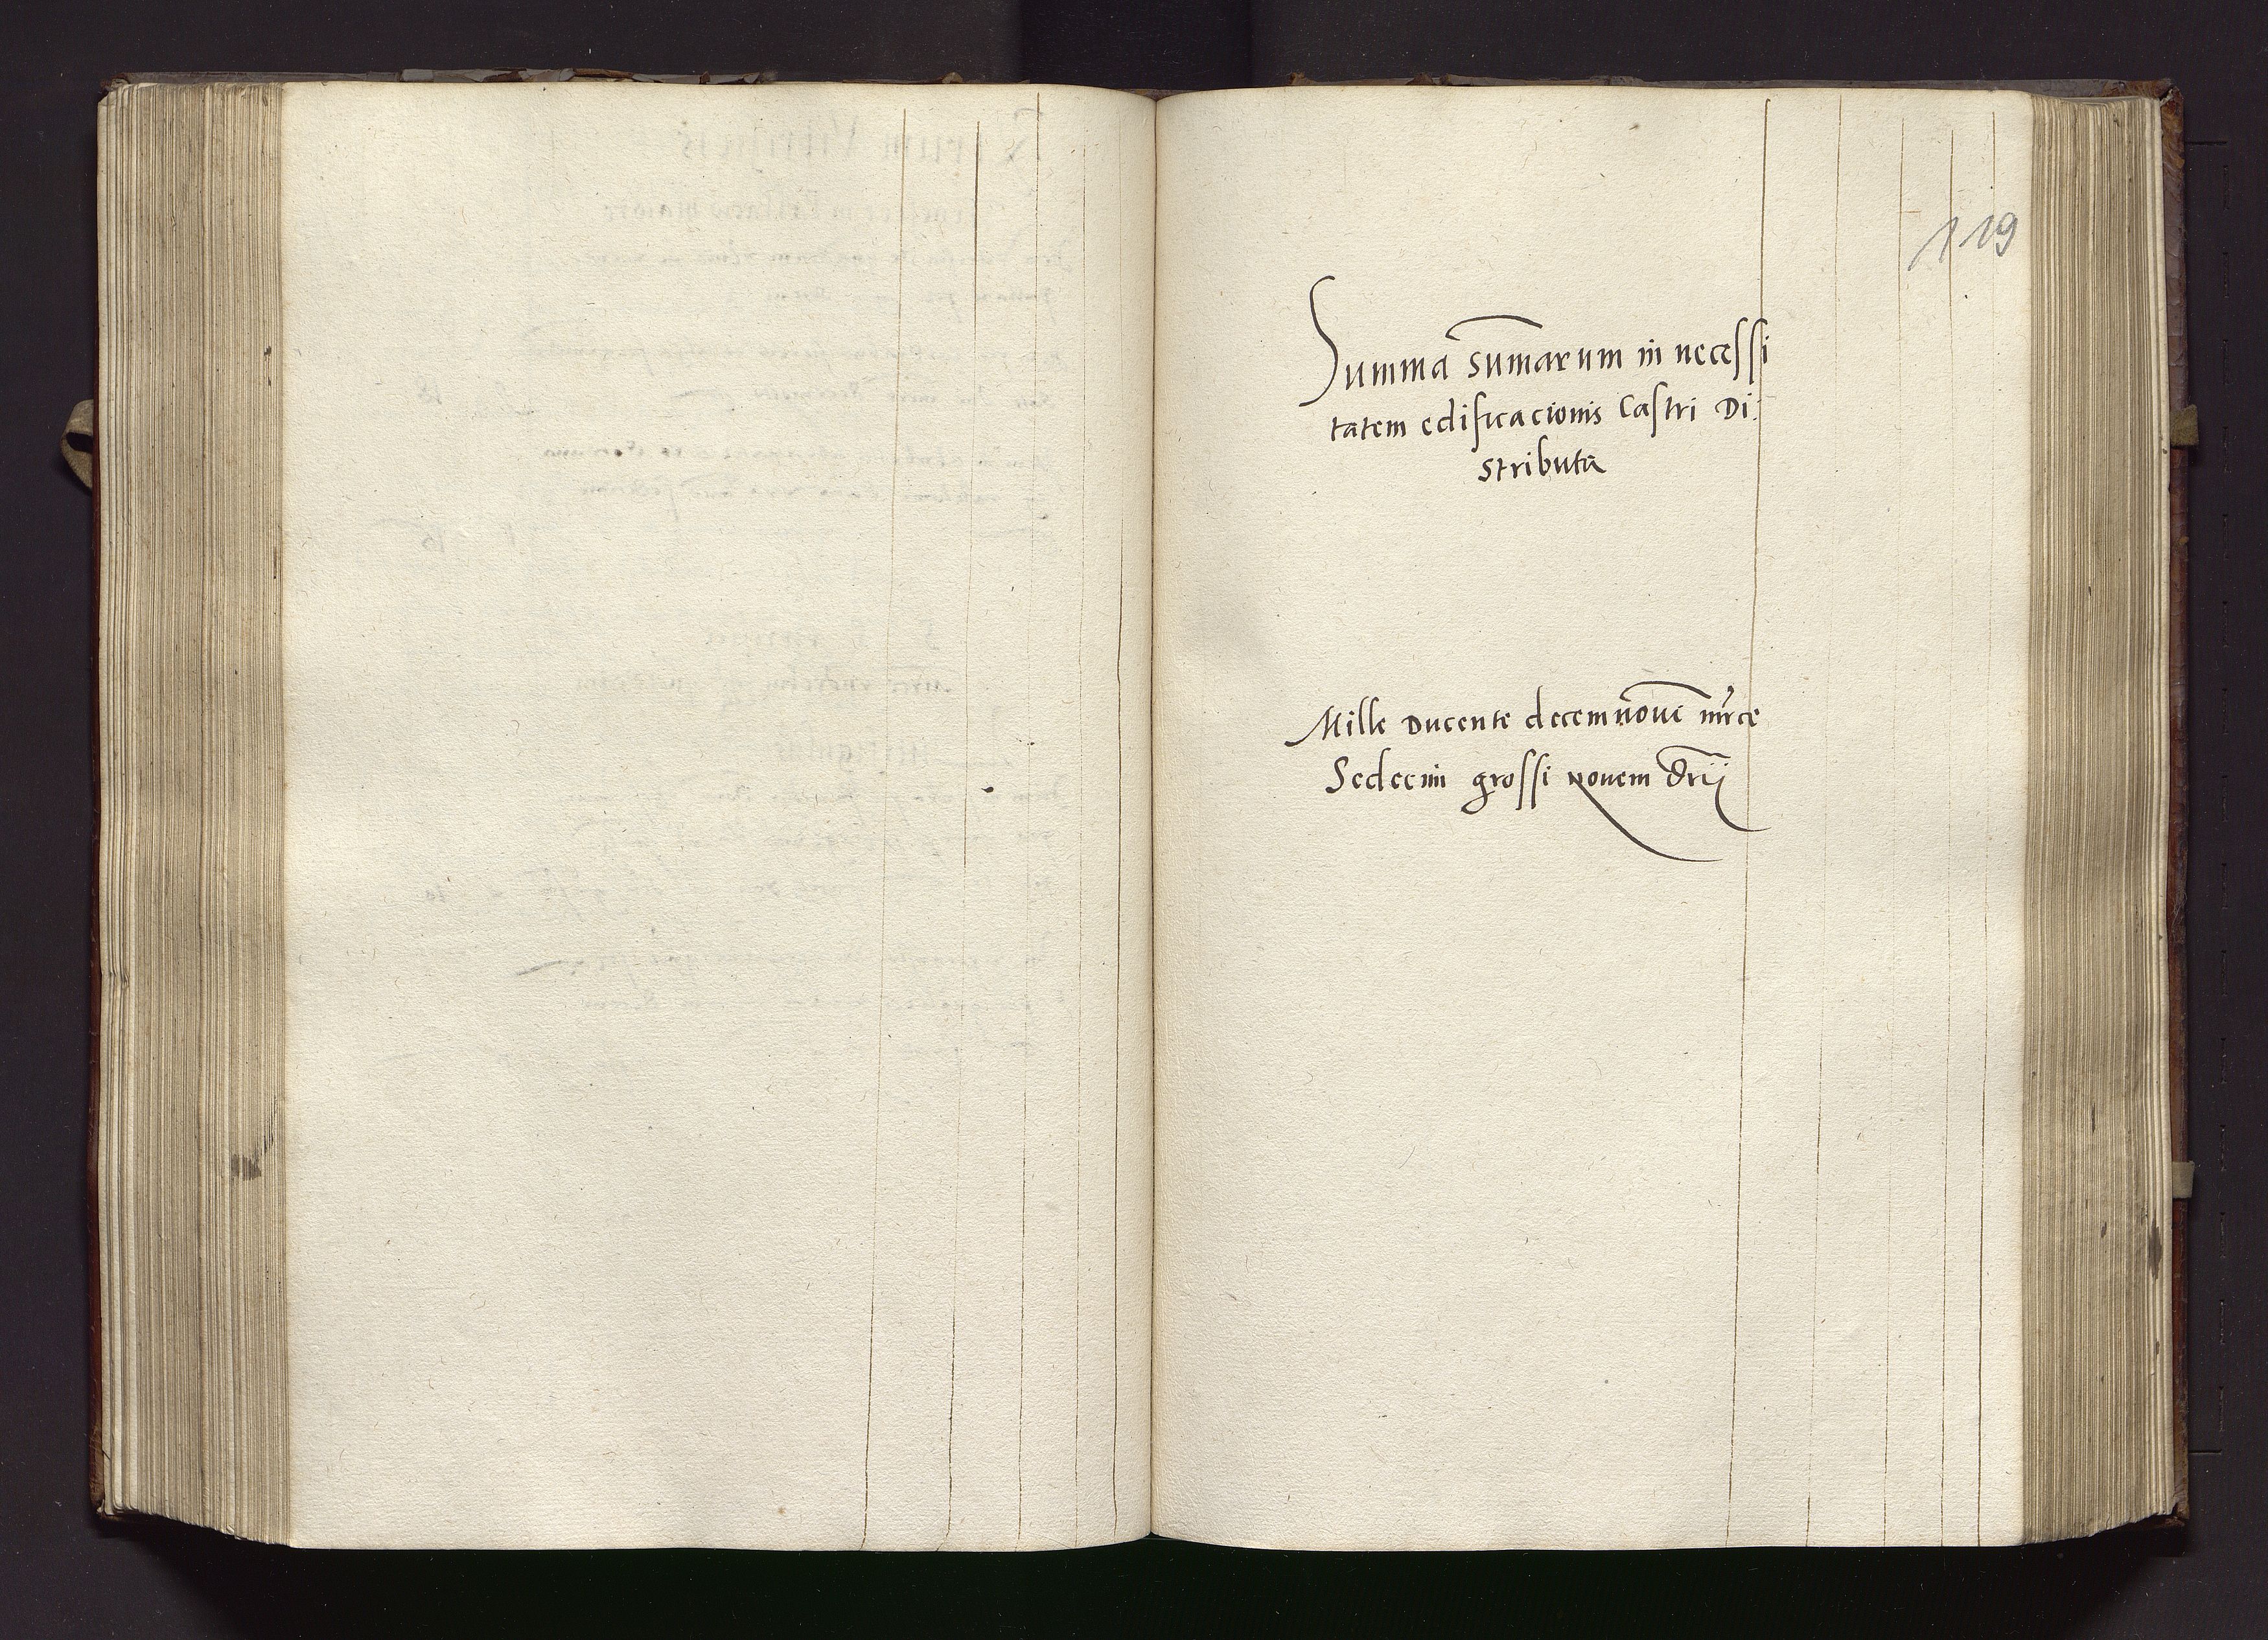 119
Summa sum̄arum in necessi
tatem edificacionis Castri Di:
stributa
Mille Ducente decemnoue͞ mr̄ce
Sedecim grossi nouem d͞rii